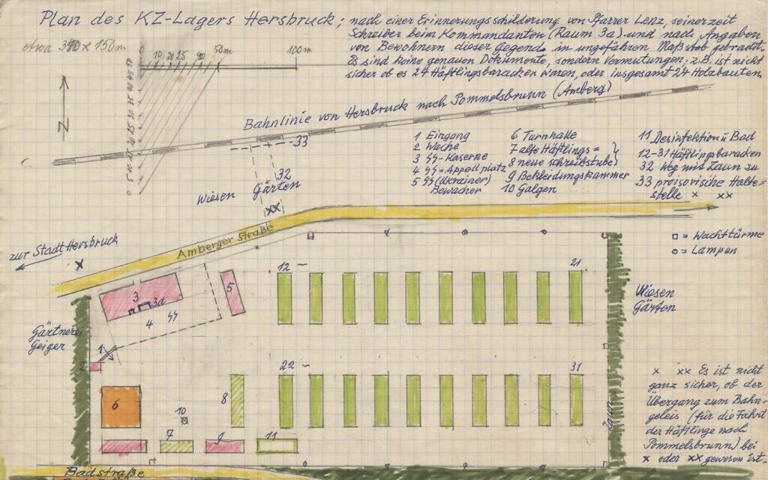 Plan des KZ-Lagers Hersbruck; nach einer Erinnerungsschilderung von Pfarrer Lenz, seinerzeit
Schreiber beim Kommandanten (Raum 3a) und nach Angaben
von Bewohnern dieser Gegend in ungefähren Maßstab gebracht.
Es sind keine genauen Dokumente, sondern Vermutungen; z.B. ist nicht
sicher ob es 24 Häftlingsbaracken waren, oder insgesamt 24 Holzbauten.
etwa 350 x 150m
0 10 20 25 40 50m 100m
N
Bahnlinie von Hersbruck nach Pommelsbrunn (Amberg)
33
32
Wiesen Gärten
xx
1 Eingang
2 Wache
3 SS-Kaserne
4 SS=Appellplatz
5 SS (Ukrainer) Bewacher
6 Turnhalle
7 alte Häftlings=
8 neue schreibstube
9 Bekleidungskammer
10 Galgen
11 Desinfektion u Bad
12-31 Häftlingsbaracken
32 Weg mit Zaun zu
33 provisorische Halte-
stelle x xx
zur Stadt Hersbruck
x
Amberger Straße
□ = Wachttürme
o = Lampen
12 – 21
3 3a
5
4 SS
Wiesen
Gärten
Gärtnerei
Geiger
1
22 – 31
6
10
8
7
9
11
Zaun
Badstraße
x xx Es ist nicht
ganz sicher, ob der
Übergang zum Bahn-
geleis (für die Fahrt
der Häftlinge nach
Pommelsbrunn) bei
x oder xx gewesen ist.